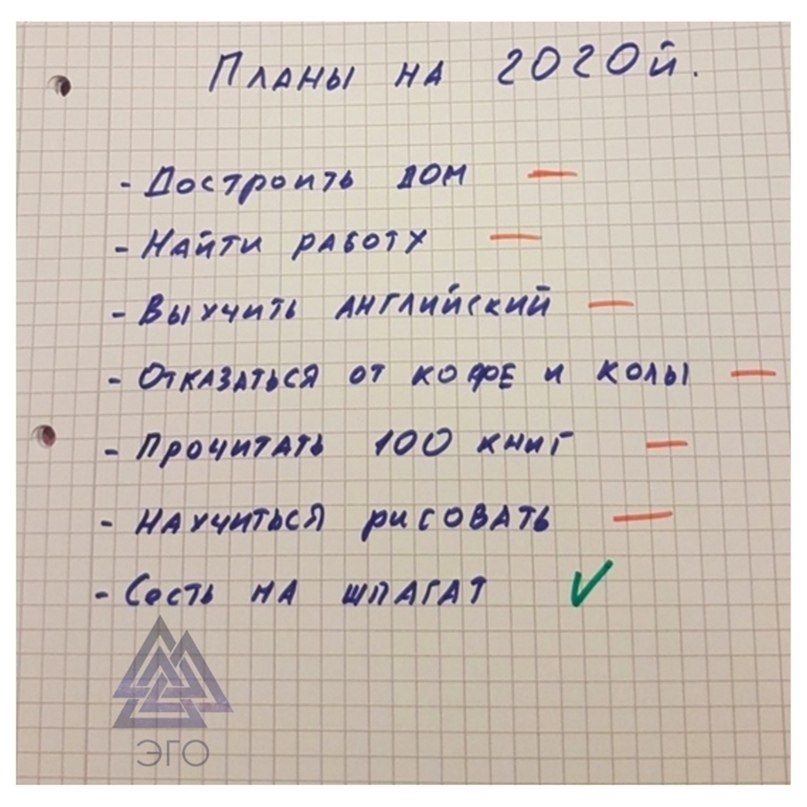 Планы на 2020й.
- Достроить дом —
- Найти работу —
- Выучить английский —
- Отказаться от кофе и колы —
- Прочитать 100 книг —
- Научиться рисовать —
- Сесть на шпагат ✓
ЭГО